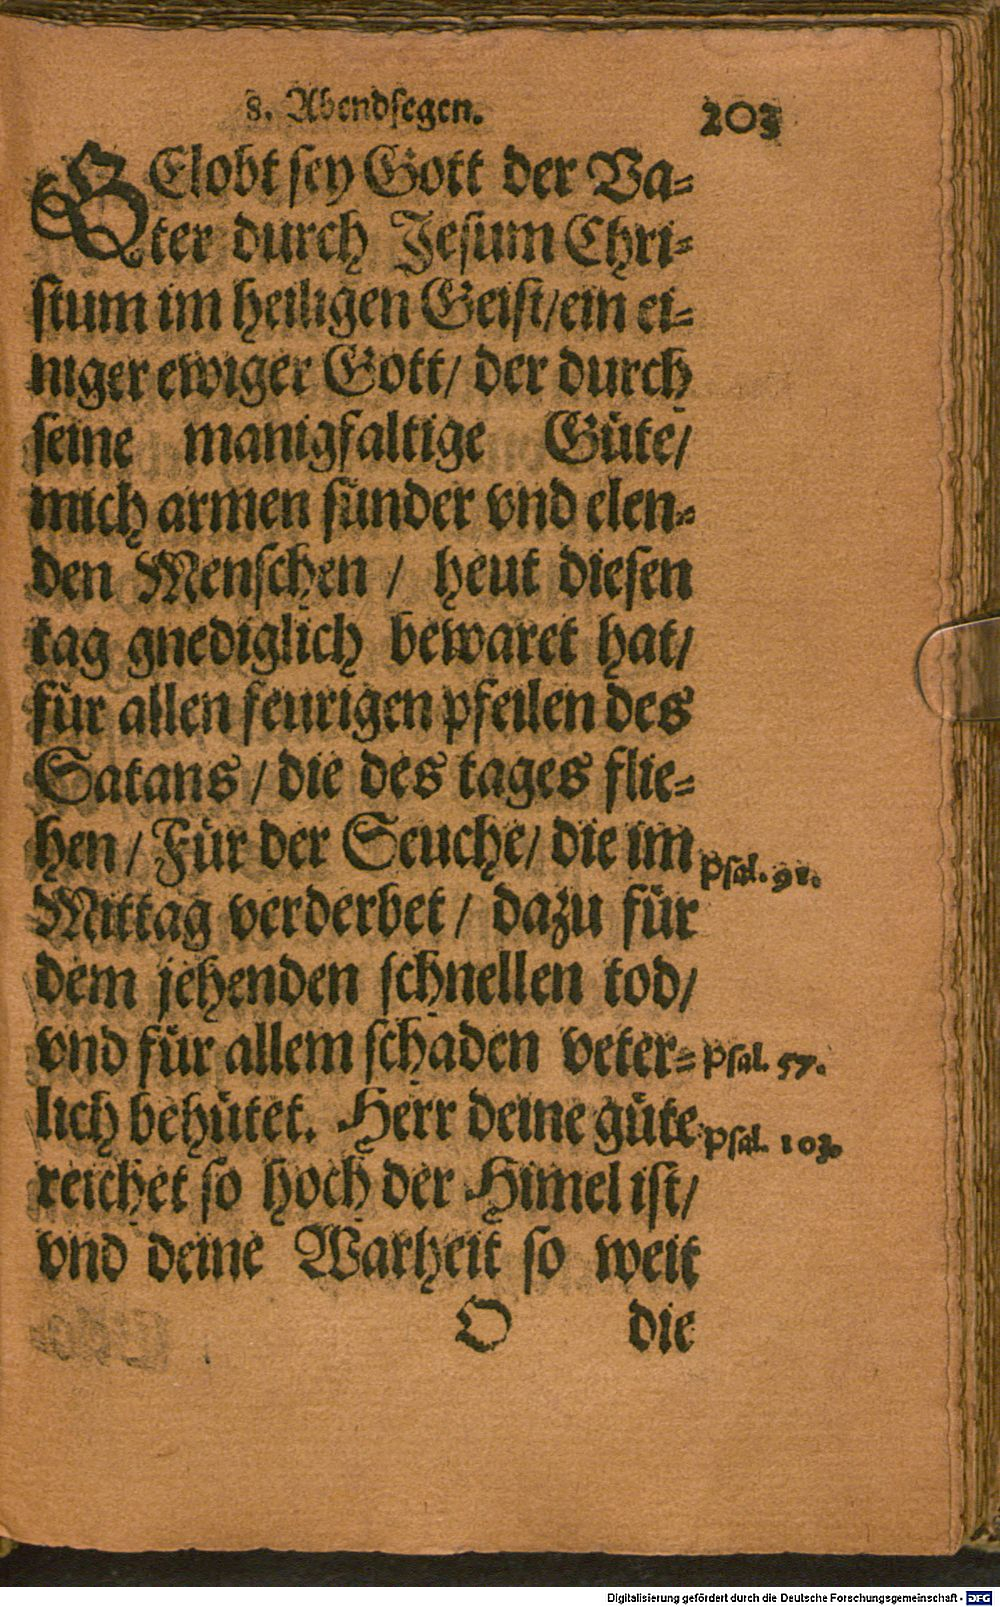 8. Abendsegen. 203
GElobt sey Gott der Va=
ter durch Jesum Chri=
stum im heiligen Geist/ein ei=
niger ewiger Gott/ der durch
seine manigfaltige Güte/
mich armen sünder vnd elen=
den Menschen / heut diesen
tag gnediglich bewaret hat/
für allen feurigen pfeilen des
Satans / die des tages flie=
hen / Für der Seuche/ die im
Psal. 91.
Mittag verderbet / dazu für
dem jehenden schnellen tod/
vnd für allem schaden veter=
Psal. 57.
lich behütet. Herr deine güte
Psal. 103.
reichet so hoch der Himel ist/
vnd deine Warheit so weit
O die
Digitalisierung gefördert durch die Deutsche Forschungsgemeinschaft - DFG